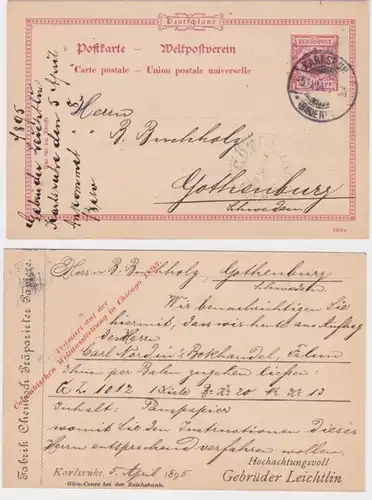 Deutschland
Postkarte – Weltpostverein
Carte postale – Union postale universelle
REICHSPOST
KARLSRUHE
(BADEN)
Herrn
B. Buchholz
Gothenburg
Schweden
1895
Gebrüder Leichtlin
Karlsruhe den 5 April
Ankommet
Herrn B. Buchholz, Gothenburg
Schweden
Wir benachrichtigen Sie
hiermit, dass wir heute im Auftrag
des Herrn
Carl Nordin's Bokhandel,
Ihnen per Bahn zugehen liessen:
G L 1012 1 Kiste
Inhalt: Pauspapier
womit Sie den Instructionen dieses
Herrn entsprechend verfahren wollen.
Hochachtungsvoll
Karlsruhe, 5. April 1895
Gebrüder Leichtlin
Giro-Conto bei der Reichsbank.
Fabrik Chemisch Präparirter Papiere.
Prämiirt auf der
Columbischen Weltausstellung in Chicago 1893.